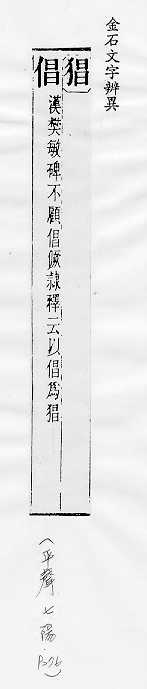 金石文字辨異
猖
倡 漢樊敏碑不顧倡㒐隸釋云以倡爲猖
(平聲七陽.B76)